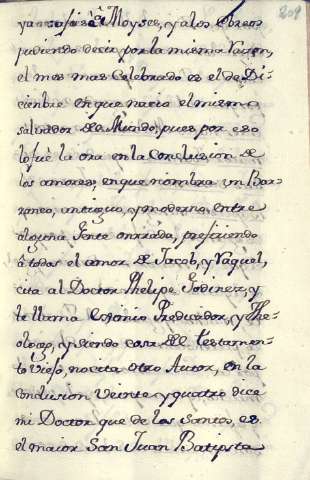 209
Moyses, y a los Ebreos
pudiendo decir por la misma Raçon,
el mes mas Celebrado es el de Di-
ciembre en que nacio el mismo
salvador del Mundo, pues por eso
lo fue la ora en la Conclusion de
los amores, en que nombra un Bar-
raneo, antiguo, y moderno entre
alguna Jente onrrada, prefiriendo
à todos el amor de Jacob, y Raquel,
cita al Doctor Phelipe Godinez, y
le llama Predicador, y The-
ologo, y siendo cosa del testamen-
to viejo, no cita otro Autor, en la
conclusion veinte y quatro dice
mi Doctor que de los Santos, es
el maior San Juan Baptista